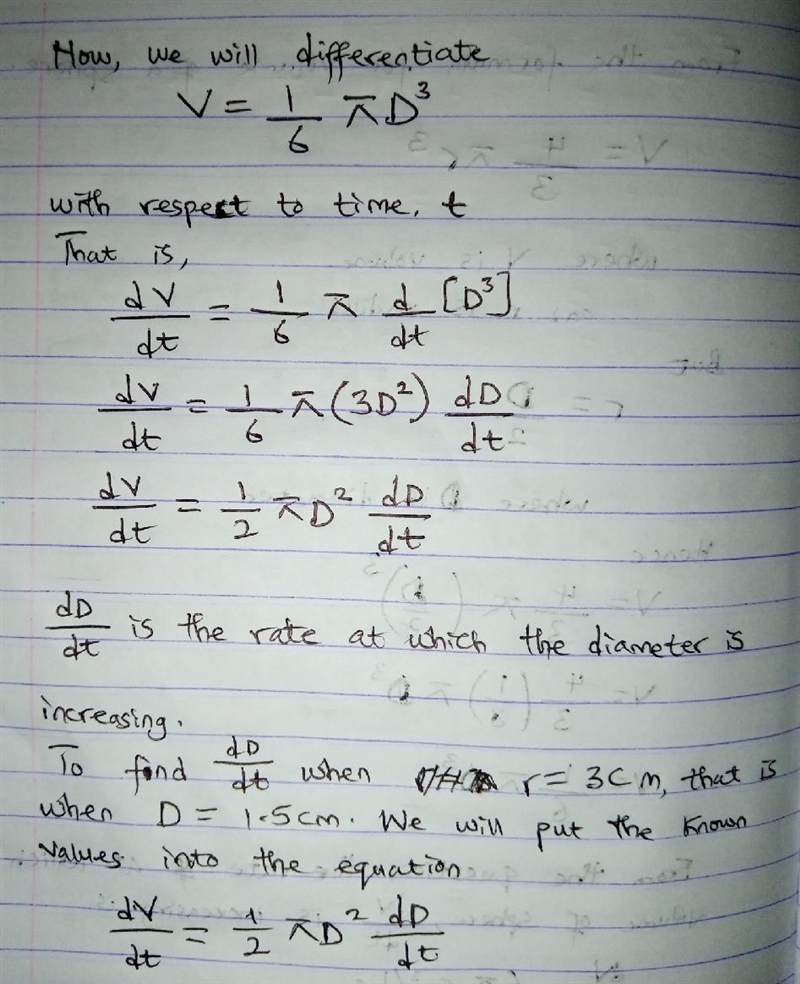 Now, we will differentiate
V = 1/6 πD³
with respect to time, t
That is,
dV/dt = 1/6 π d/dt [D³]
dV/dt = 1/6 π(3D²) dD/dt
dV/dt = 1/2 πD² dD/dt
dD/dt is the rate at which the diameter is
increasing.
To find dD/dt when r = 3cm, that is
when D = 1.5cm. We will put the known
values into the equation
dV/dt = 1/2 πD² dD/dt